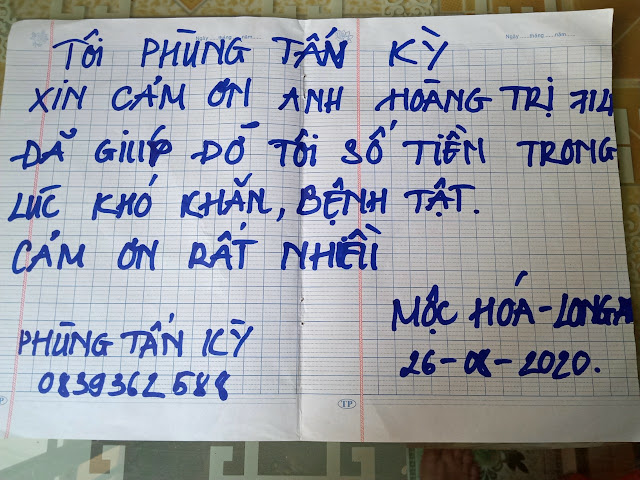 Ngày.....tháng.....năm.....
Ngày.....tháng.....năm.....
TÔI PHÙNG TẤN KỲ
XIN CẢM ƠN ANH HOÀNG TRỊ 714
ĐÃ GIÚP ĐỠ TÔI SỐ TIỀN TRONG
LÚC KHÓ KHĂN, BỆNH TẬT.
CẢM ƠN RẤT NHIỀU
MỘC HÓA-LONGA
26-08-2020.
PHÙNG TẤN KỲ
0839362588
TP